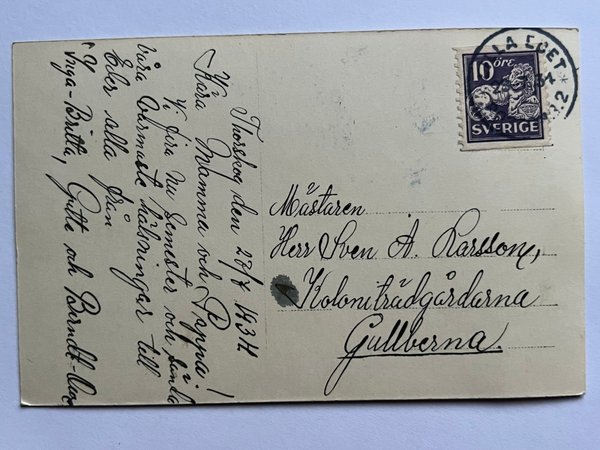 Thorskog den 27/7 1934
Kära Mamma och Pappa!
Vi fira nu Semester och sända
våra varmaste hälsningar till
Eder alla från
Inga-Britta, Gutte och Berndt-Ove
LLA EDET
10 ÖRE
SVERIGE
Mästaren
Herr Sven A. Larsson,
Koloniträdgårdarna
Gullberna.